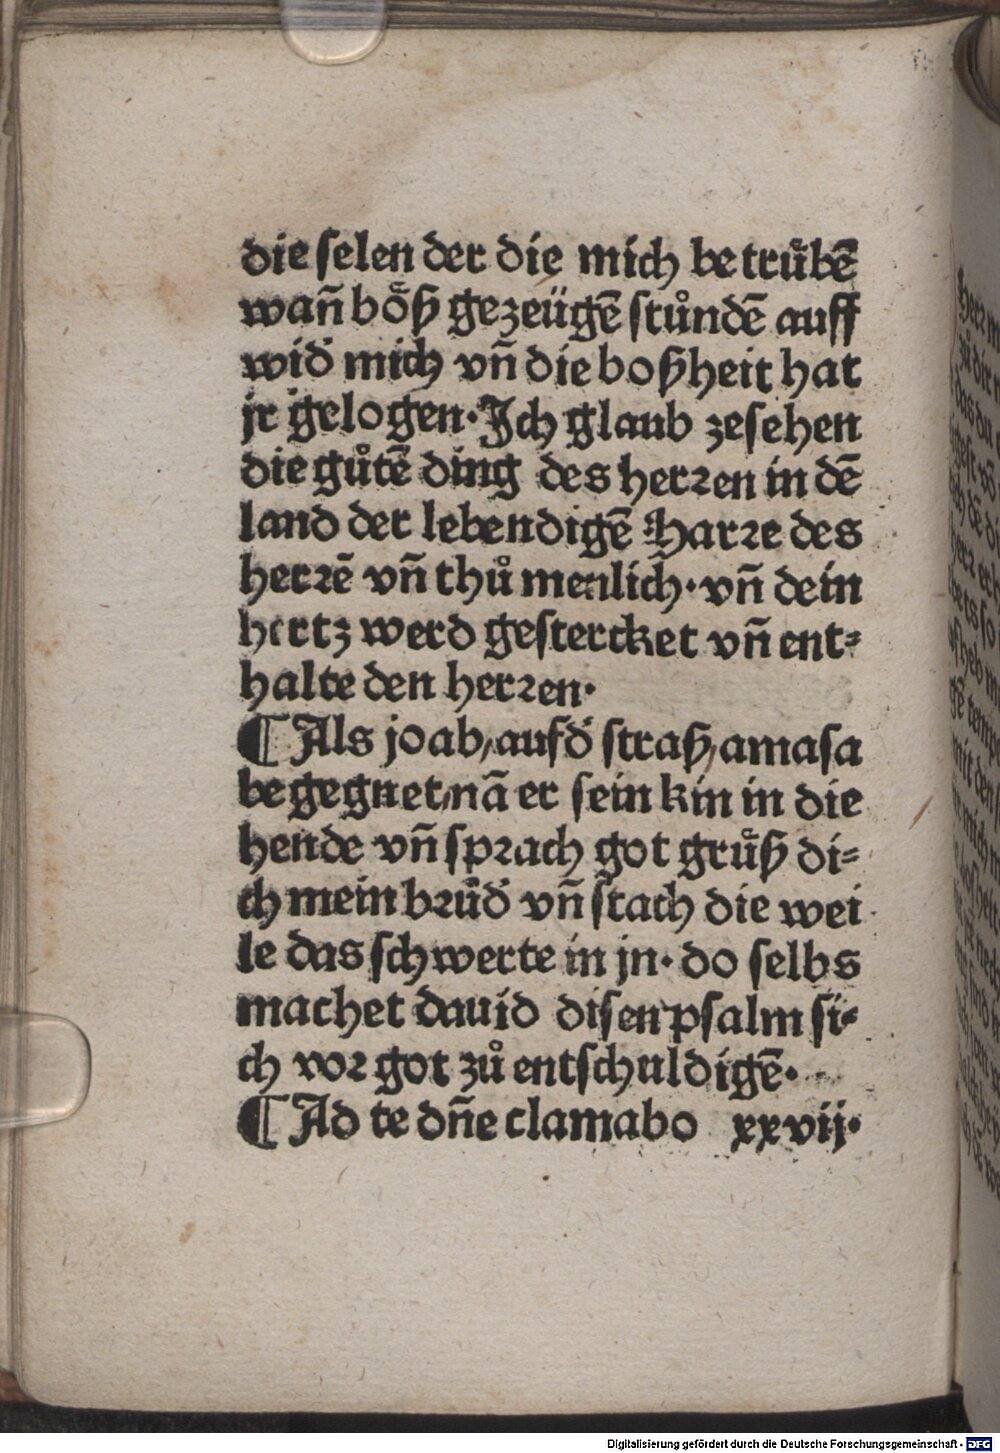 die selen der die mich betruͤbē
wañ boͤß gezeügē stuͦndē auff
wid̕ mich vñ die boßheit hat
jr gelogen. Ich glaub zesehen
die guͦtē ding des herꝛen in dē
land der lebendigē Harꝛe des
herꝛē vñ thuͦ menlich. vñ dein
hertz werd gestercket vñ ent⸗
halte den herꝛen.
¶ Als joab/auf d̕ straß/amasa
begegnet/nā er sein kin in die
hende vñ spꝛach got gruͤß di⸗
ch mein bꝛuͦd̕ vñ stach die wei
le das schwerte in jn. do selbs
machet dauid disen psalm si⸗
ch voꝛ got zuͦ entschuldigē.
¶ Ad te dñe clamabo xxvij.
Digitalisierung gefördert durch die Deutsche Forschungsgemeinschaft - DFG